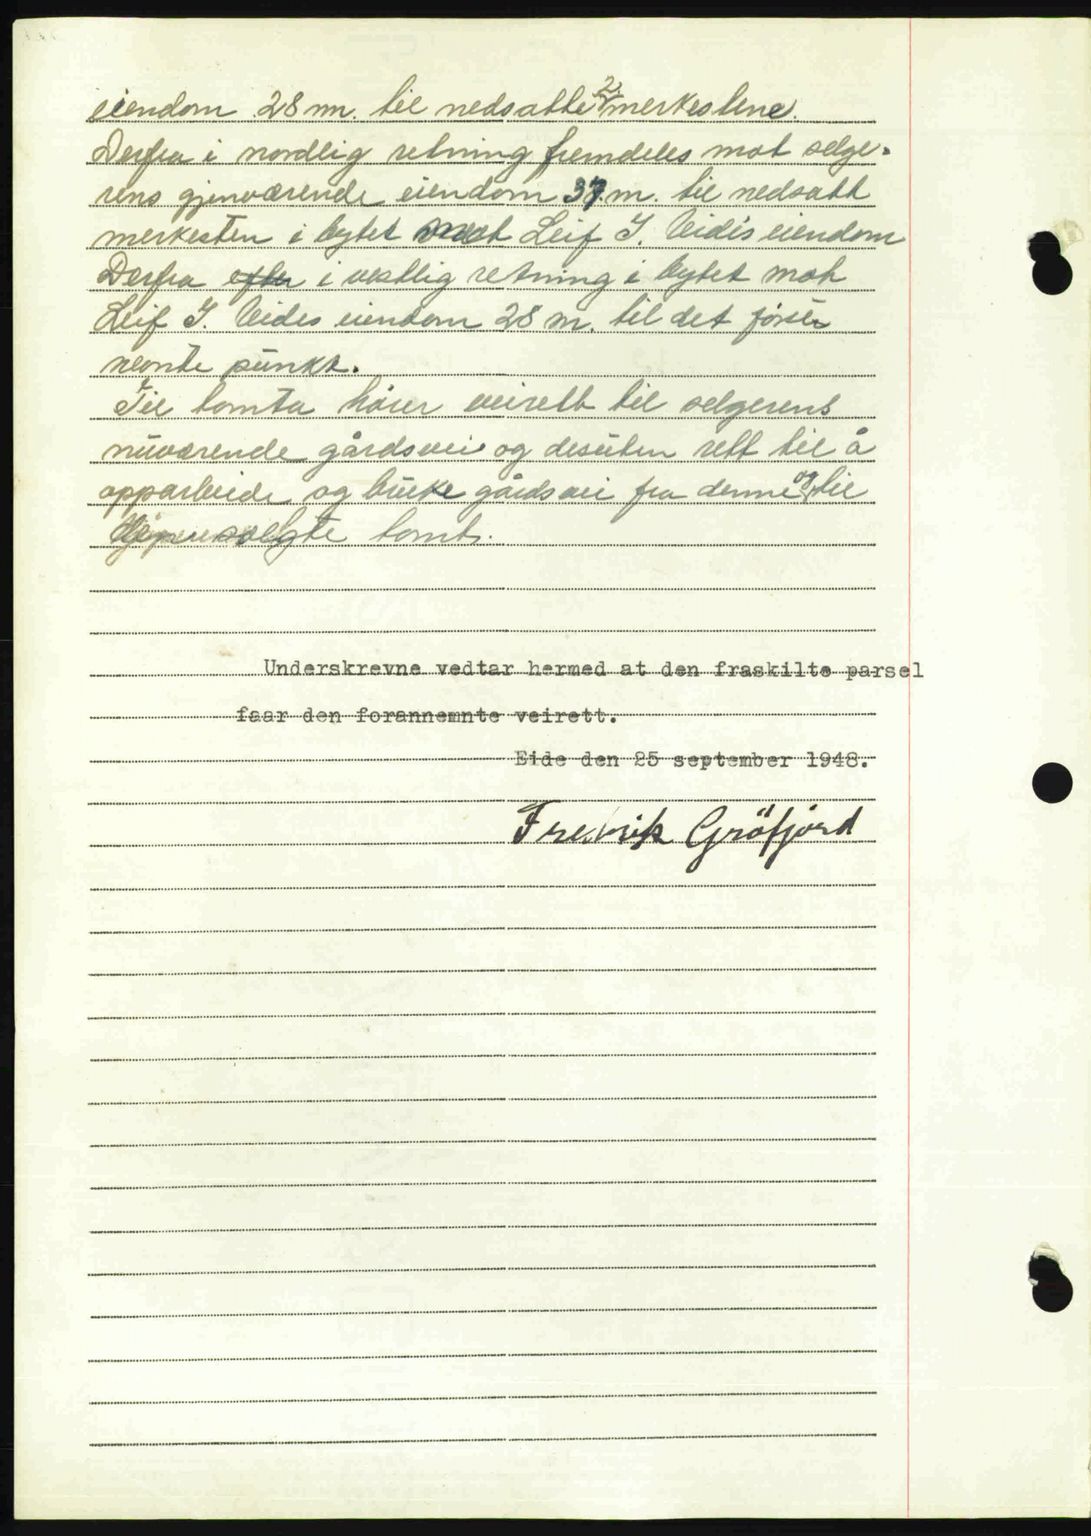 eiendom 28 m. til nedsatte 2 merkestene.
Derfra i nordlig retning fremdeles mot selge-
rens gjenværende eiendom 37 m. til nedsatt
merkesten i bytet mot Leif I. Eides eiendom
Derfra efter i vestlig retning i bytet mot
Leif I. Eides eiendom 28 m. til det først
nevnte punkt.
Til tomta hører veirett til selgerens
nuværende gårdsvei og desuten rett til å
opparbeide og bruke gårdsvei fra denne og til
solgte tomt.
Underskrevne vedtar hermed at den fraskilte parsel
faar den forannemnte veirett.
Eide den 25 september 1948.
Fredrik Gröfjord